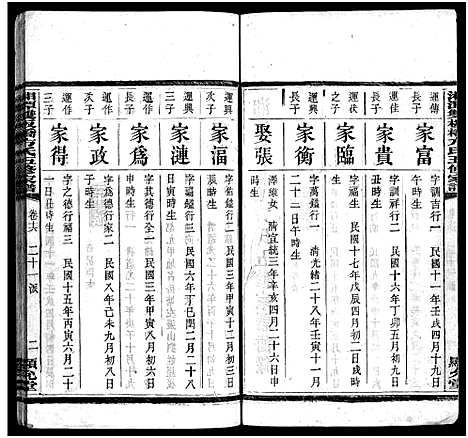 湘潭雙板橋方氏五修家譜
運傳
長子
家富
字訓吉行一 民國十一年壬戌四月初九日
亥時生
次子
家貴
民國十六年丁卯五月初九日
運作
之子
家臨
民國十七年戊辰四月初二日戌時
生
運興
長子
家衡
字萬鎰行一 清光緒二十八年壬寅十一月
二十二日午時生
娶張
潭淑女 清宣統三年辛亥四月二十六日申
時生
運興
次子
家福
民國三年甲寅十二月初二
日辰時生
三子
家漣
民國六年丁巳閏二月二十八
日午時生
運作
長子
家為
字其德行一 民國三年甲寅八月初六日
酉時生
次子
家政
字為德行二 民國八年己未九月初三日
子時生
三子
家得
字之德行三 民國十五年丙寅六月二十
一日丑時生
湘潭雙板橋方氏五修家譜
卷十六 二十一派